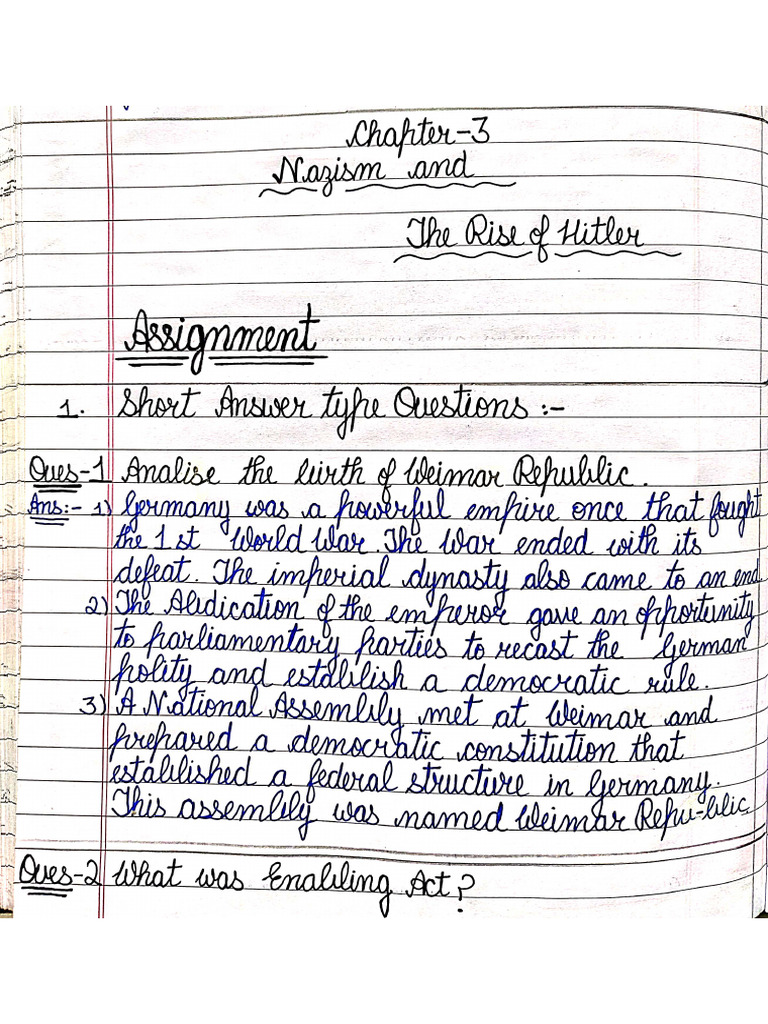 Chapter-3
Nazism and
The Rise of Hitler
Assignment
1. Short Answer type Questions :-
Ques-1 Analise the birth of Weimar Republic.
Ans:- 1) Germany was a powerful empire once that fought
the 1st World War. The War ended with its
defeat. The imperial dynasty also came to an end
2) The Abdication of the emperor gave an opportunity
to parliamentary parties to recast the German
polity and establish a democratic rule.
3) A National Assembly met at Weimar and
prepared a democratic constitution that
established a federal structure in Germany.
This assembly was named Weimar Repu-blic.
Ques-2 What was Enabling Act?